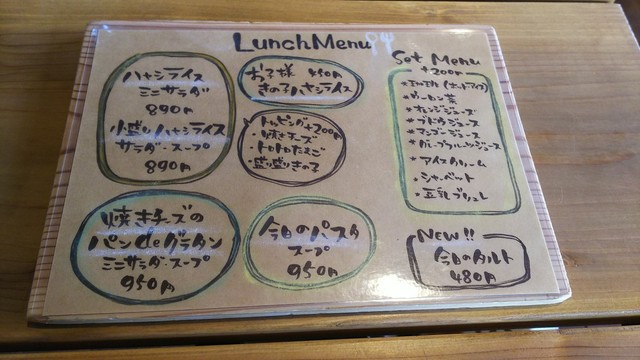 Lunch Menu
ハヤシライス
ミニサラダ
890円
小盛りハヤシライス
サラダ・スープ
890円
お子様 450円
きのこハヤシライス
トッピング+200円
・焼きチーズ
・トロトロたまご
・盛り盛りきのこ
焼きチーズの
パンdeグラタン
ミニサラダ・スープ
950円
今日のパスタ
スープ
950円
Set Menu
+200円
*珈琲(ホットアイス)
*ウーロン茶
*オレンジジュース
*ブドウジュース
*マンゴージュース
*グレープフルーツジュース
*アイスクリーム
・シャーベット
・豆乳ブリュレ
NEW!!
今日のタルト
480円